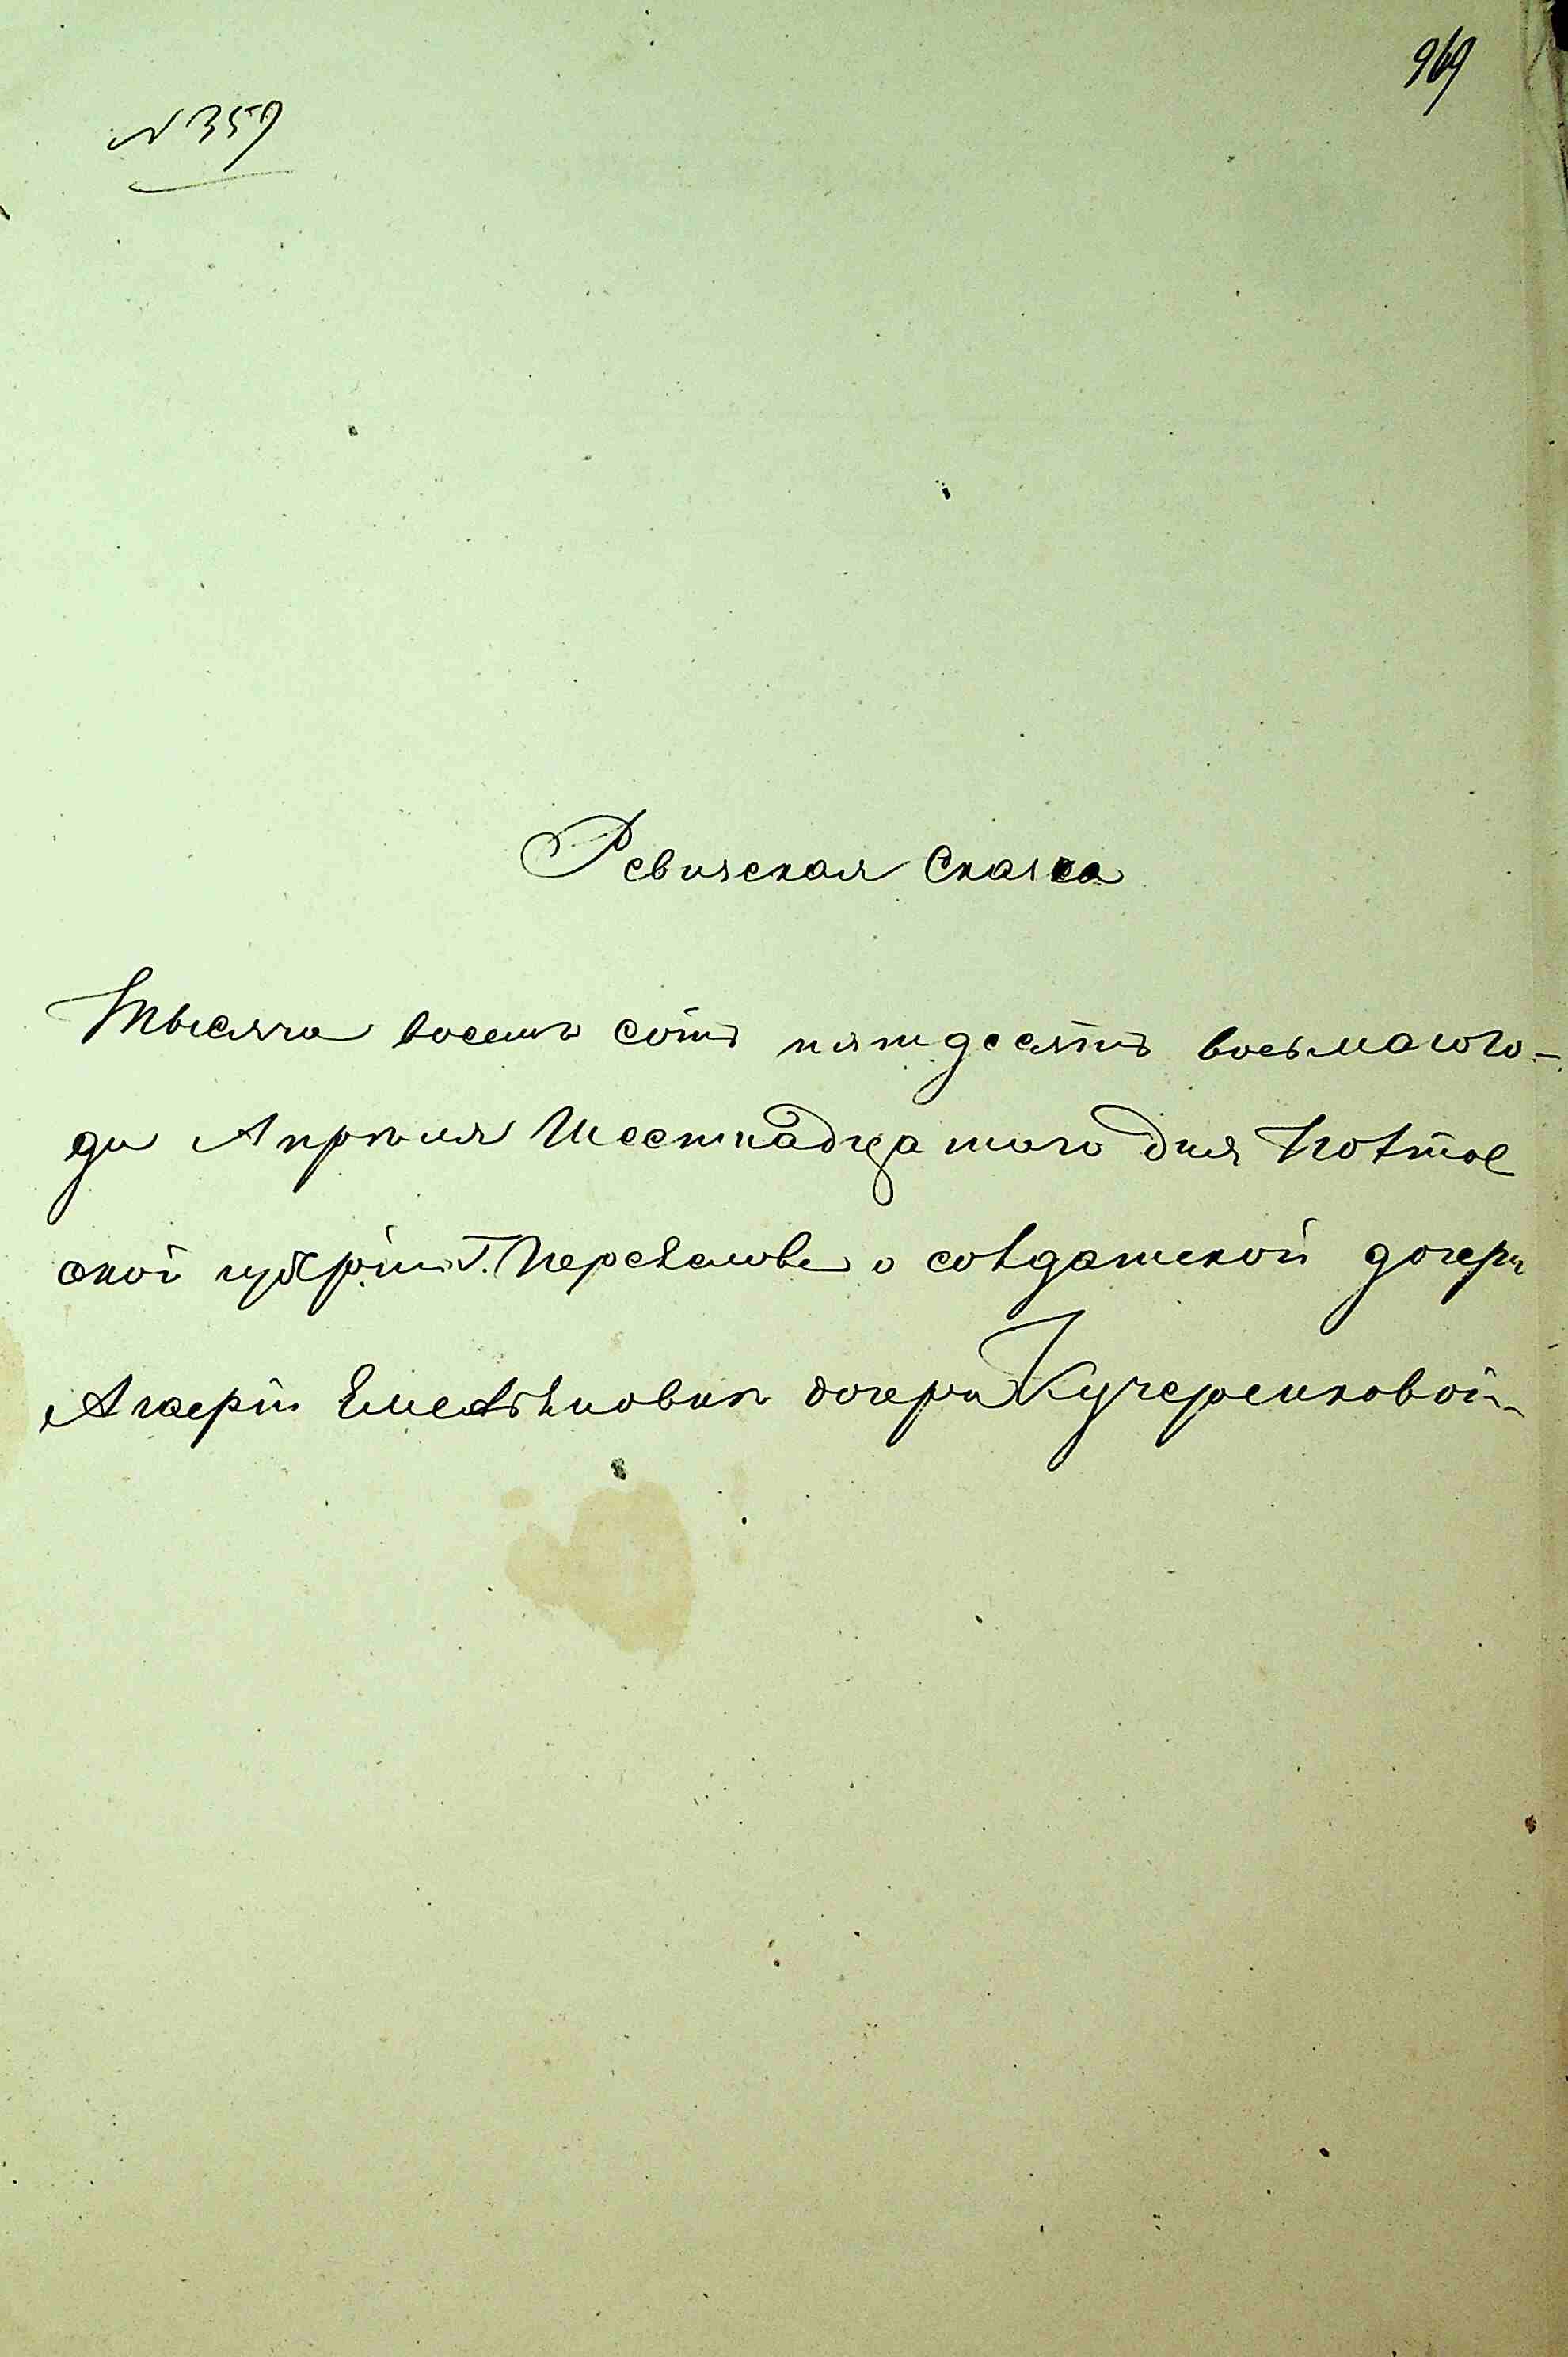 969
N 359
Ревизская Сказка
Тысяча восемь сотъ пятдесятъ восьмагого-
да Апрѣля Шестнадцатого дня Полтав
ской губернiи Г. Переяслова о солдатской дочери
Емельяновой дочери Кучеренковой